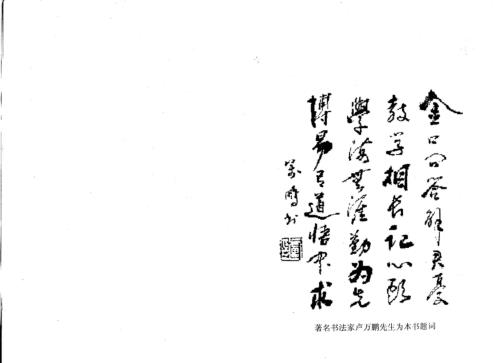 金口问答解君憂
教学相长记心頭
學海無涯勤为先
博易有道悟中求
萬鹏书
著名书法家卢万鹏先生为本书题词